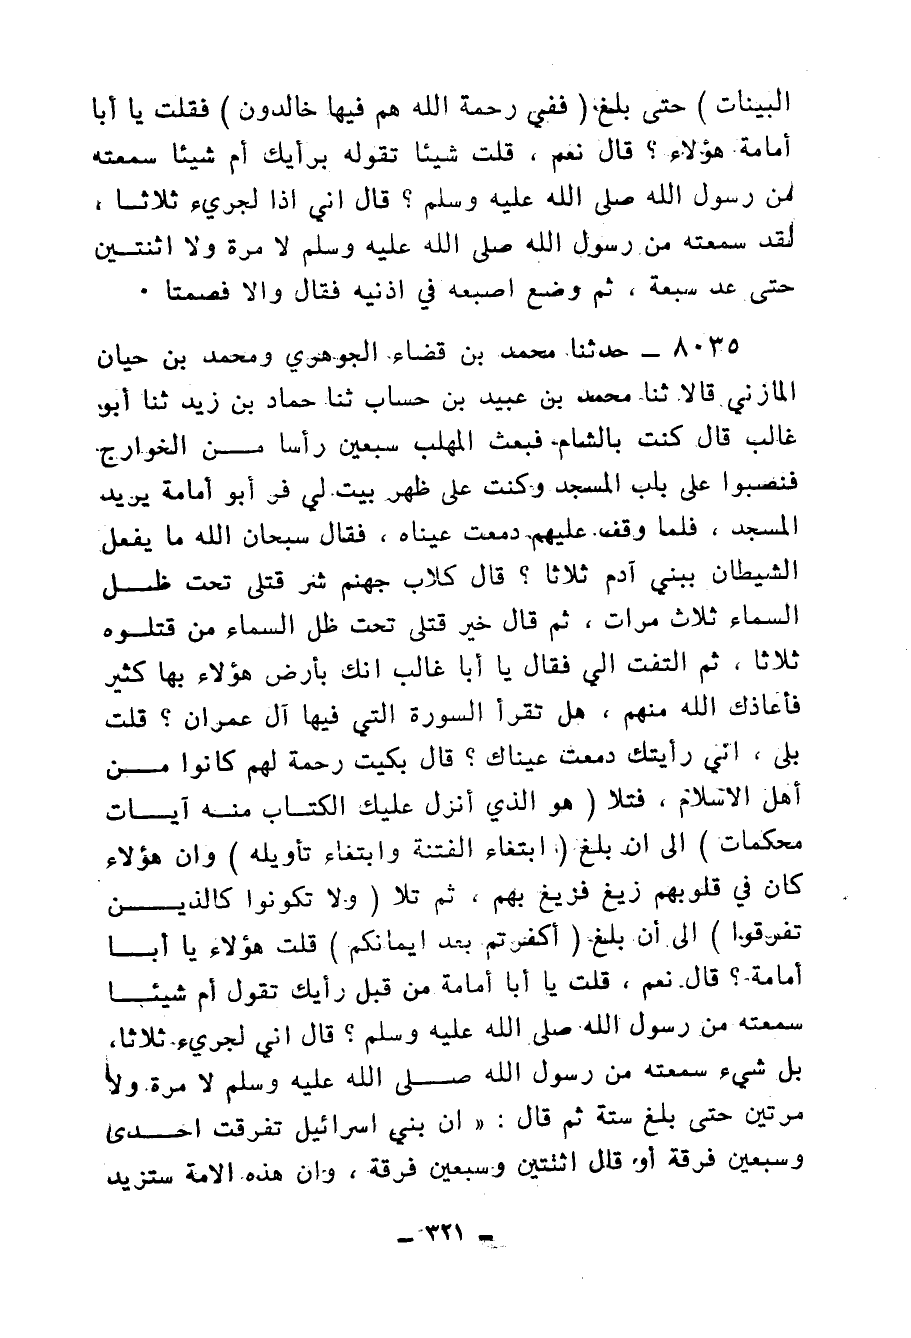 البينات ) حتى بلغ ( ففي رحمة الله هم فيها خالدون ) فقلت يا أبا
أمامة هؤلاء ؟ قال نعم ، قلت شيئا تقوله برأيك أم شيئا سمعته
من رسول الله صلى الله عليه وسلم ؟ قال اني اذا لجريء ثلاثـا ،
لقد سمعته من رسول الله صلى الله عليه وسلم لا مرة ولا اثنتـين
حتى عد سبعة ، ثم وضع اصبعه في اذنيه فقال والا فصمتا ٠
٨٠٣٥ ـ حدثنا محمد بن قضاء الجوهري ومحمد بن حيان
المازني قالا ثنا محمد بن عبيد بن حساب ثنا حماد بن زيد ثنا أبو
غالب قال كنت بالشام فبعث المهلب سبعين رأسا مـــن الخوارج
فنصبوا على باب المسجد وكنت على ظهر بيت لي فر أبو أمامة يريد
المسجد ، فلما وقف عليهم دمعت عيناه ، فقال سبحان الله ما يفعل
الشيطان ببني آدم ثلاثا ؟ قال كلاب جهنم شر قتلى تحت ظــل
السماء ثلاث مرات ، ثم قال خير قتلى تحت ظل السماء من قتلـوه
ثلاثا ، ثم التفت الي فقال يا أبا غالب انك بأرض هؤلاء بها كثير
فأعاذك الله منهم ، هل تقرأ السورة التي فيها آل عمران ؟ قلت
بلى ، اني رأيتك دمعت عيناك ؟ قال بكيت رحمة لهم كانوا مـــن
أهل الاسلام ، فتلا ( هو الذي أنزل عليك الكتـاب منـه آيـــات
محكمات ) الى ان بلغ ( ابتغاء الفتنة وابتغاء تأويله ) وان هؤلاء
كان في قلوبهم زيغ فزيغ بهم ، ثم تلا ( ولا تكونوا كالذيـــــن
تفرقوا ) الى أن بلغ ( أكفرتم بعد ايمانكم ) قلت هؤلاء يا أبـــا
أمامة ؟ قال نعم ، قلت يا أبا أمامة من قبل رأيك تقول أم شيئــا
سمعته من رسول الله صلى الله عليه وسلم ؟ قال اني لجريء ثلاثا،
بل شيء سمعته من رسول الله صـــلى الله عليه وسلم لا مرة ولا
مرتين حتى بلغ ستة ثم قال : « ان بني اسرائيل تفرقت احـــدى
وسبعين فرقة أو قال اثنتين وسبعين فرقة ، وان هذه الامة ستزيد
ـ ٣٢١ ـ